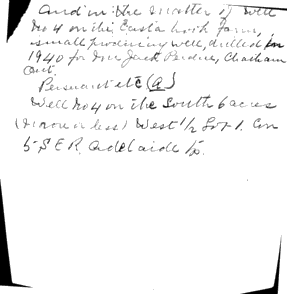 And in the matter of Well
No 4 on the East a hoih farm,
small producing well, drilled in
1940 for Mr Jack Perdue, Chatham
Ont.
Persuant etc (a)
Well No 4 on the South 6 acres
(more or less) West 1/2 Lot 1. Con
5 S E R. Adelaide